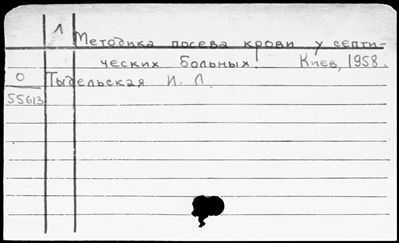 Л
Методика посева крови у септи-
ческих больных. Киев, 1958.
О Тыдельская И. Л.
55613